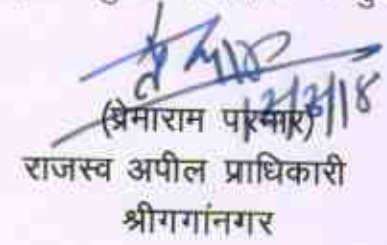 12/3/18
(प्रेमाराम परमार)
राजस्व अपील प्राधिकारी
श्रीगगांनगर